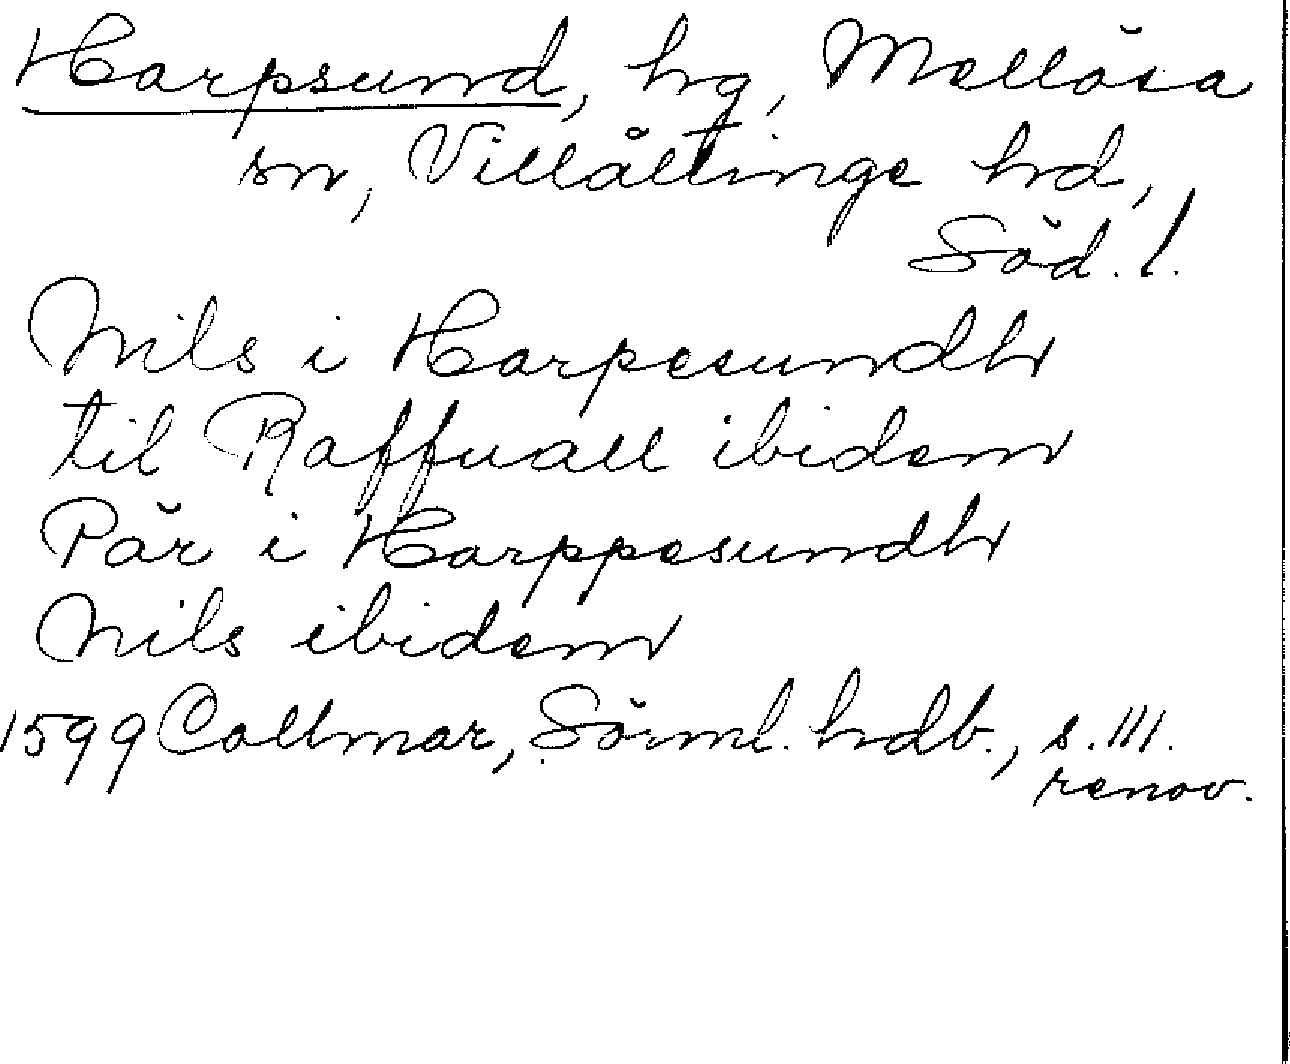 Harpsund, hg, Mellösa
sn, Villåttinge hd,
Söd. l.
Nils i Harpesundh
til Raffuall ibidem
Pär i Harppesundh
Nils ibidem
1599 Collmar, Sörml. hdb., s. 111.
renov.